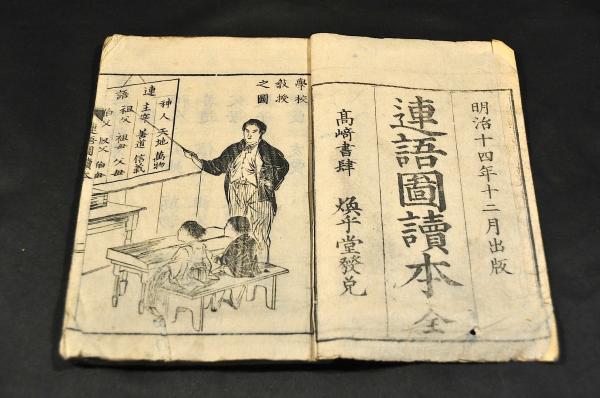 明治十四年十二月出版
連語圖讀本全
高﨑書肆 煥乎堂發兌
學校
教授
之圖
連語
神人 天地 萬物
主宰 善道 信義
祖父 祖母 父母
伯父 叔父 伯母
連語圖讀本